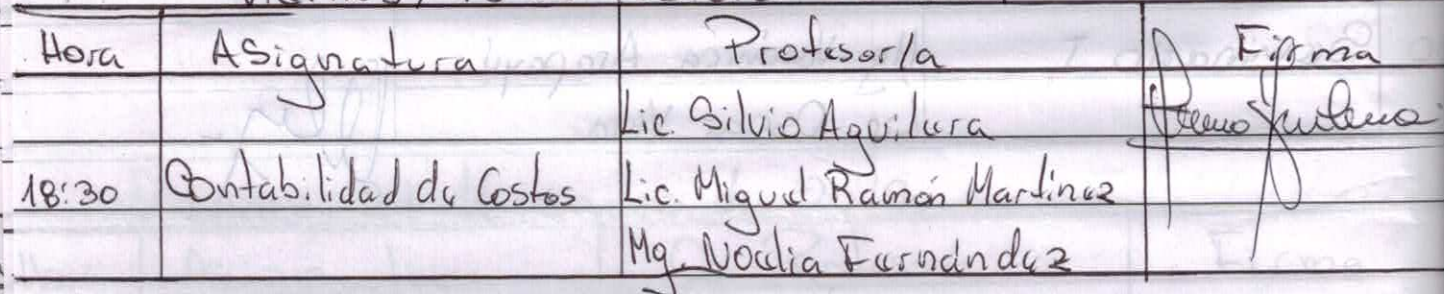 Hora Asignatura Profesor/a Firma
Lic. Silvio Aguilera
18:30 Contabilidad de Costos Lic. Miguel Ramón Martínez
Mg. Noelia Fernández